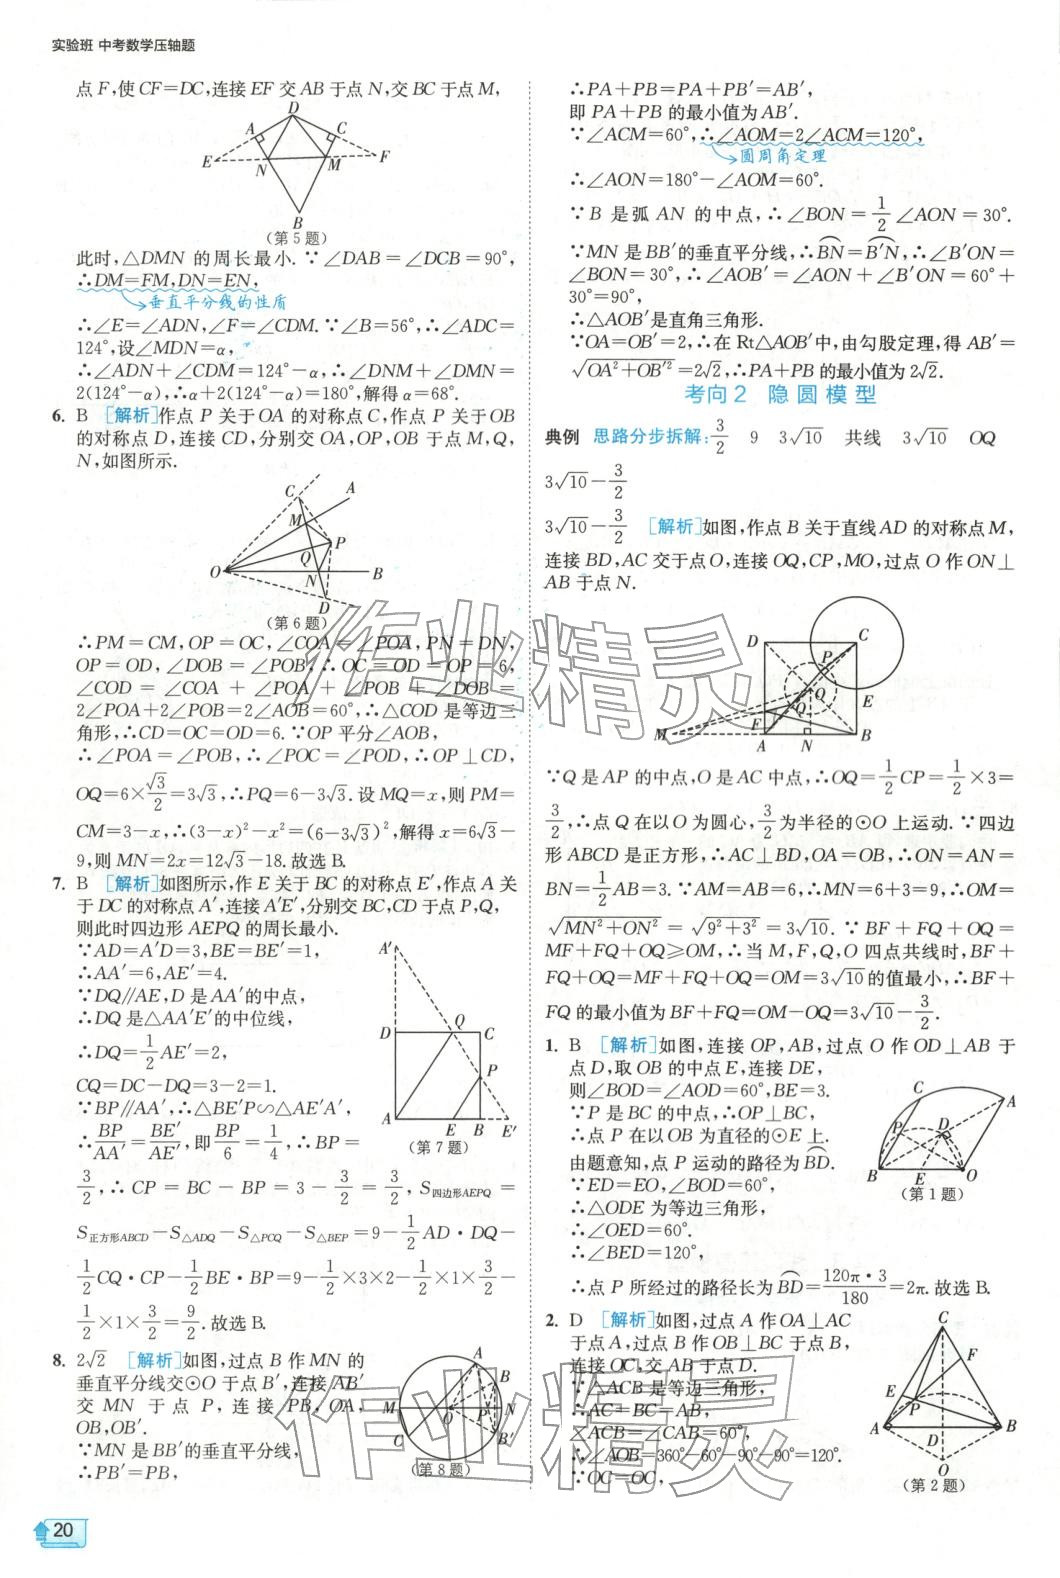 实验班 中考数学压轴题
点 F,使 CF=DC,连接 EF 交 AB 于点 N,交 BC 于点 M,
D
A
C
E
N
M
F
B
(第 5 题)
此时,△DMN 的周长最小.∵∠DAB=∠DCB=90°,
∴DM=FM,DN=EN,
→垂直平分线的性质
∴∠E=∠ADN,∠F=∠CDM.∵∠B=56°,∴∠ADC=
124°,设∠MDN=α,
∴∠ADN+∠CDM=124°-α,∴∠DNM+∠DMN=
2(124°-α),∴α+2(124°-α)=180°,解得 α=68°.
6. B [解析]作点 P 关于 OA 的对称点 C,作点 P 关于 OB
的对称点 D,连接 CD,分别交 OA,OP,OB 于点 M,Q,
N,如图所示.
C
A
M
P
Q
O
N
B
D
(第 6 题)
∴PM=CM,OP=OC,∠COA=∠POA,PN=DN,
OP=OD,∠DOB=∠POB,∴OC=OD=OP=6,
∠COD=∠COA+∠POA+∠POB+∠DOB=
2∠POA+2∠POB=2∠AOB=60°,∴△COD 是等边三
角形,∴CD=OC=OD=6.∵OP 平分∠AOB,
∴∠POA=∠POB,∴∠POC=∠POD,∴OP⊥CD,
OQ=6×√3/2=3√3,∴PQ=6-3√3.设 MQ=x,则 PM=
CM=3-x,∴(3-x)²-x²=(6-3√3)²,解得 x=6√3-
9,则 MN=2x=12√3-18.故选 B.
7. B [解析]如图所示,作 E 关于 BC 的对称点 E′,作点 A 关
于 DC 的对称点 A′,连接 A′E′,分别交 BC,CD 于点 P,Q,
则此时四边形 AEPQ 的周长最小.
∵AD=A′D=3,BE=BE′=1,
∴AA′=6,AE′=4.
∵DQ∥AE,D 是 AA′的中点,
∴DQ 是△AA′E′的中位线,
∴DQ=1/2AE′=2,
CQ=DC-DQ=3-2=1.
∵BP∥AA′,∴△BE′P∽△AE′A′,
∴BP/AA′=BE′/AE′,即BP/6=1/4,∴BP=
A′
D
Q
C
P
A
E
B
E′
(第 7 题)
3/2,∴CP=BC-BP=3-3/2=3/2,S四边形AEPQ=
S正方形ABCD-S△ADQ-S△PCQ-S△BEP=9-1/2AD·DQ-
1/2CQ·CP-1/2BE·BP=9-1/2×3×2-1/2×1×3/2-
1/2×1×3/2=9/2.故选 B.
8. 2√2 [解析]如图,过点 B 作 MN 的
垂直平分线交⊙O 于点 B′,连接 AB′
交 MN 于点 P,连接 PB,OA,
OB,OB′.
∵MN 是 BB′的垂直平分线,
∴PB′=PB,
A
B
M
O
P
N
C
B′
(第 8 题)
∴PA+PB=PA+PB′=AB′,
即 PA+PB 的最小值为 AB′.
∵∠ACM=60°,∴∠AOM=2∠ACM=120°,
→圆周角定理
∴∠AON=180°-∠AOM=60°.
∵B 是弧 AN 的中点,∴∠BON=1/2∠AON=30°.
∵MN 是 BB′的垂直平分线,∴B͡N=B͡′N,∴∠B′ON=
∠BON=30°,∴∠AOB′=∠AON+∠B′ON=60°+
30°=90°,
∴△AOB′是直角三角形.
∵OA=OB′=2,∴在 Rt△AOB′中,由勾股定理,得 AB′=
√(OA²+OB′²)=2√2,∴PA+PB 的最小值为 2√2.
考向2 隐圆模型
典例 思路分步拆解:3/2 9 3√10 共线 3√10 OQ
3√10-3/2
3√10-3/2 [解析]如图,作点 B 关于直线 AD 的对称点 M,
连接 BD,AC 交于点 O,连接 OQ,CP,MO,过点 O 作 ON⊥
AB 于点 N.
D
C
P
Q
O
E
F
M
A
N
B
∵Q 是 AP 的中点,O 是 AC 中点,∴OQ=1/2CP=1/2×3=
3/2,∴点 Q 在以 O 为圆心,3/2为半径的⊙O 上运动.∵四边
形 ABCD 是正方形,∴AC⊥BD,OA=OB,∴ON=AN=
BN=1/2AB=3.∵AM=AB=6,∴MN=6+3=9,∴OM=
√(MN²+ON²)=√(9²+3²)=3√10.∵BF+FQ+OQ=
MF+FQ+OQ≥OM,∴当 M,F,Q,O 四点共线时,BF+
FQ+OQ=MF+FQ+OQ=OM=3√10的值最小,∴BF+
FQ 的最小值为 BF+FQ=OM-OQ=3√10-3/2.
1. B [解析]如图,连接 OP,AB,过点 O 作 OD⊥AB 于
点 D,取 OB 的中点 E,连接 DE,
则∠BOD=∠AOD=60°,BE=3.
∵P 是 BC 的中点,∴OP⊥BC,
∴点 P 在以 OB 为直径的⊙E 上.
由题意知,点 P 运动的路径为B͡D.
∵ED=EO,∠BOD=60°,
∴△ODE 为等边三角形,
∴∠OED=60°.
∴∠BED=120°,
C
A
P
D
B
E
O
(第 1 题)
∴点 P 所经过的路径长为B͡D=120π·3/180=2π.故选 B.
2. D [解析]如图,过点 A 作 OA⊥AC
于点 A,过点 B 作 OB⊥BC 于点 B,
连接 OC,交 AB 于点 D.
∵△ACB 是等边三角形,
∴AC=BC=AB,
∠ACB=∠CAB=60°,
∴∠AOB=360°-60°-90°-90°=120°.
∵OC=OC,
C
F
E
P
A
D
B
O
(第 2 题)
20
作业精灵
作业精灵